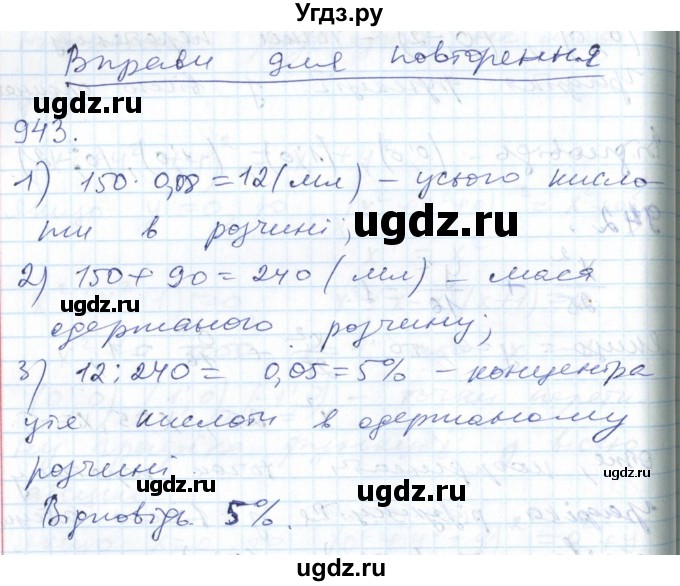 Угдз.ру
Вправи для повторення
ugdz.ru
943.
1) 150 · 0,08 = 12 (мл) – усього кисло
ти в розчині;
ugdz.ru
2) 150 + 90 = 240 (мл) – мася
ugdz.ru
одержаного розчину;
ugdz.ru
3) 12 : 240 = 0,05 = 5% – концентра
ція кислоти в одержаному
розчині.
ugdz.ru
ugdz.ru
ugdz.ru
Відповідь 5%.